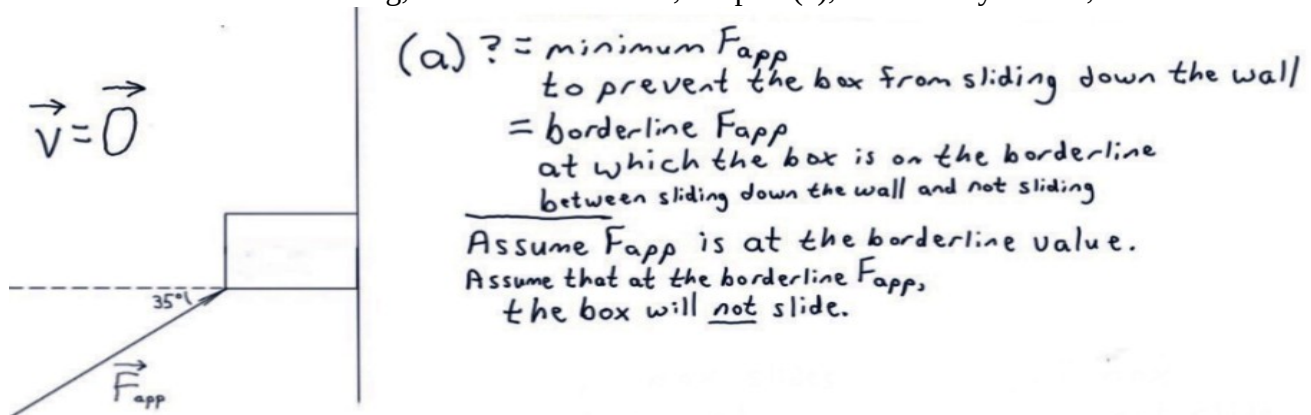 (a) ? = minimum Fapp
to prevent the box from sliding down the wall
= borderline Fapp
at which the box is on the borderline
between sliding down the wall and not sliding
Assume Fapp is at the borderline value.
Assume that at the borderline Fapp,
the box will not slide.
v = 0
35°
Fapp